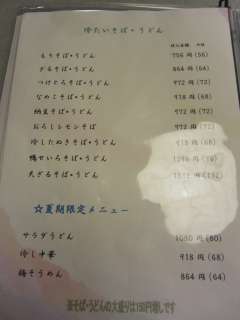 冷たいそば・うどん
もりそば・うどん 756円 (56)
ざるそば・うどん 864円 (64)
つけとろそば・うどん 972円 (72)
なめこそば・うどん 918円 (68)
納豆そば・うどん 972円 (72)
おろしレモンそば 972円 (72)
冷したぬきそば・うどん 918円 (68)
鴨せいろそば・うどん
天ざるそば・うどん
☆夏期限定メニュー
サラダうどん 1080円 (80)
冷し中華 918円 (68)
梅そうめん 864円 (64)
茶そば・うどんの大盛りは150円増しです